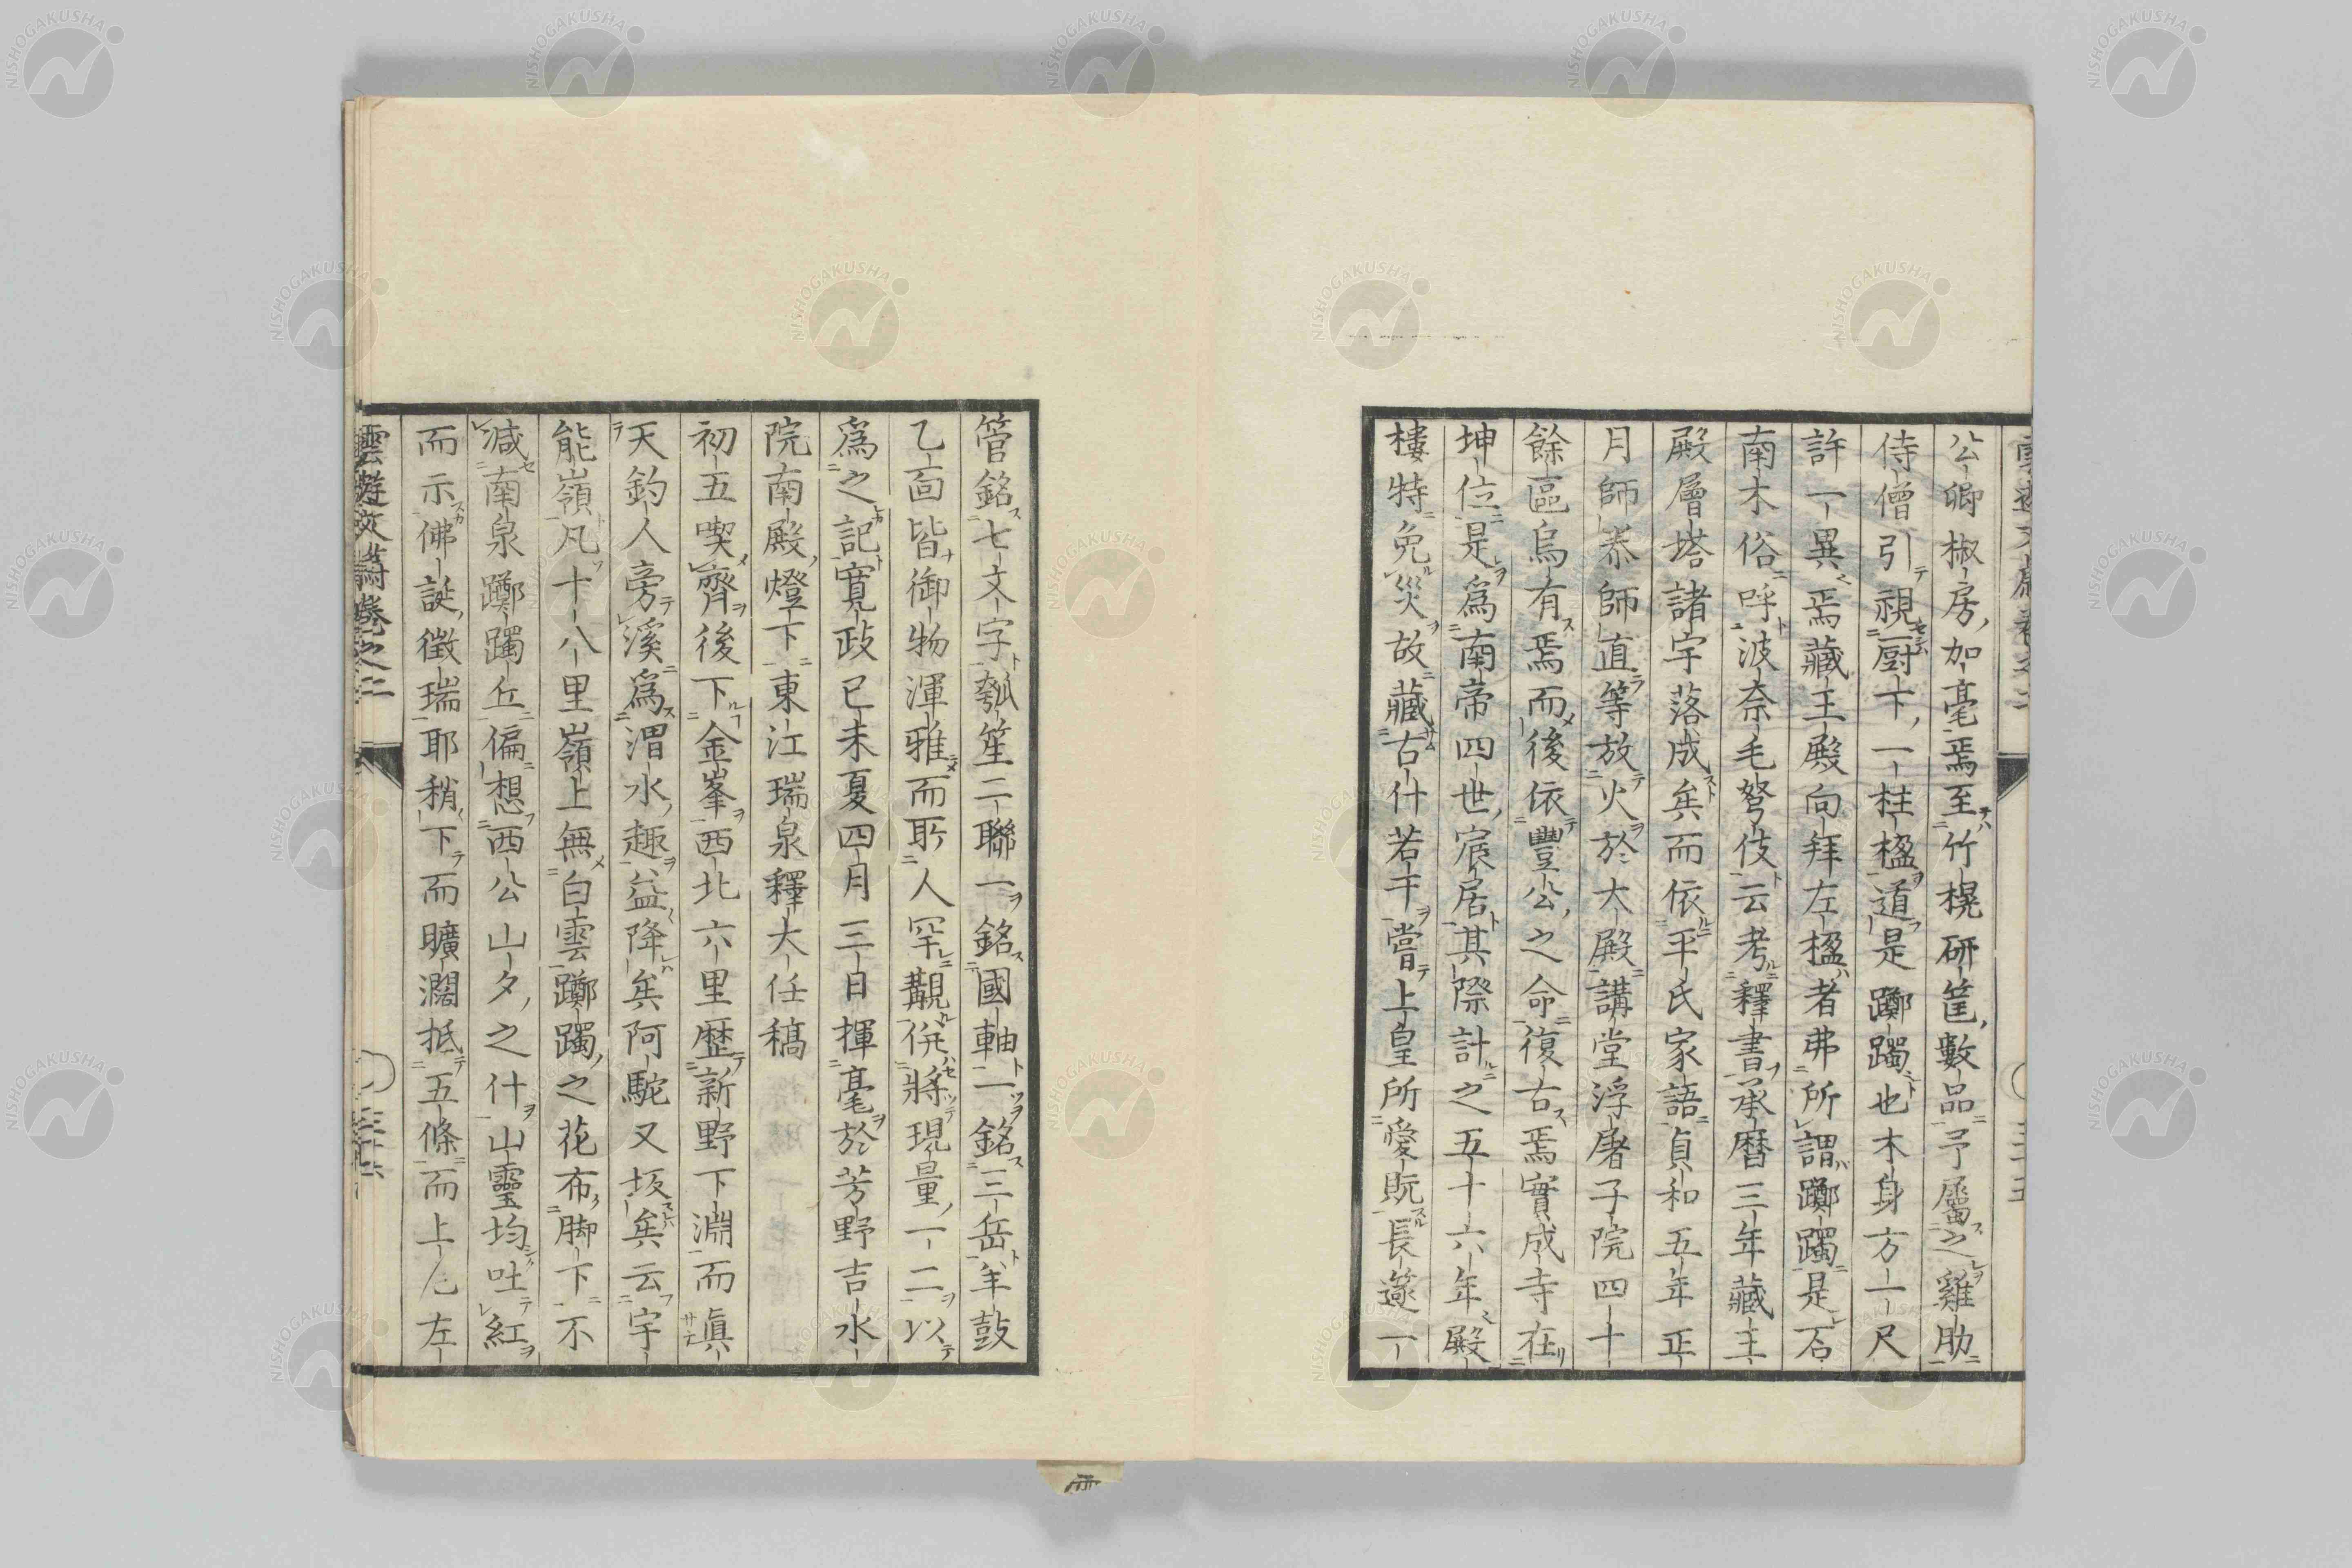 公卿椒房加毫焉至竹榥研筐數品予屬之雞肋
侍僧引視厨下一柱楹道是躑躅也木身方一尺
許一異焉藏王殿向拜左楹者弗所謂躑躅是石
南木俗呼波奈毛弩伎云考釋書承曆三年藏主
殿層塔諸宇落成矣而依平氏家語貞和五年正
月師泰師直等放火於大殿講堂浮屠子院四十
餘區烏有焉而後依豐公之命復古焉實成寺在
坤位是爲南帝四世宸居其際計之五十六年殿
樓特免災故藏古什若干嘗上皇所愛既長篴一
管銘七文字瓠笙二聯一銘國軸一銘三岳羊鼓
乙面皆御物渾雅而䀠人罕覯供將現量一二以
爲之記寛政已未夏四月三日揮毫於芳野吉水
院南殿燈下東江瑞泉釋大任稿
初五喫齊後下金峯西北六里歷新野下淵而眞
天釣人旁溪爲渭水趣益降矣阿駝又坂矣云宇
能嶺凡十八里嶺上無白雲躑躅之花布脚下不
減南泉躑躅丘偏想西公山夕之什山靈均吐紅
而示佛誕徵瑞耶稍下而曠濶抵五條而上左
雲遊文蔚卷之二